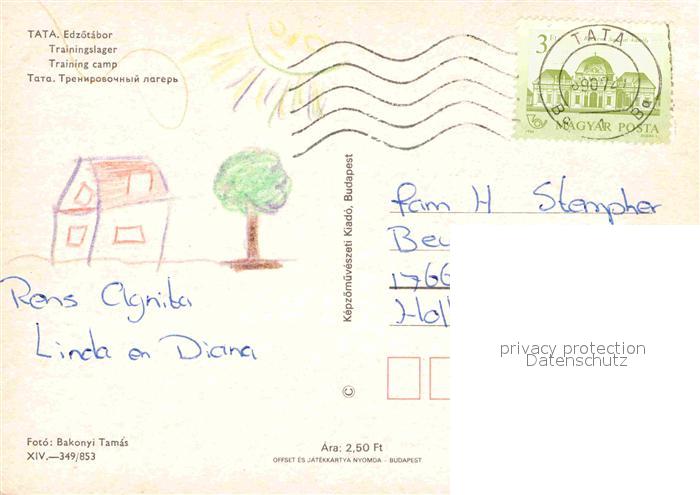 TATA. Edzőtábor
Trainingslager
Training camp
Тата. Тренировочный лагерь
3 Ft
MAGYAR POSTA
TATA
Képzőművészeti Kiadó, Budapest
©
fam H Stempher
1766
Rens Agnita
Linda en Diana
privacy protection
Datenschutz
Fotó: Bakonyi Tamás
XIV.—349/853
Ára: 2,50 Ft
OFFSET ÉS JÁTÉKKÁRTYA NYOMDA - BUDAPEST